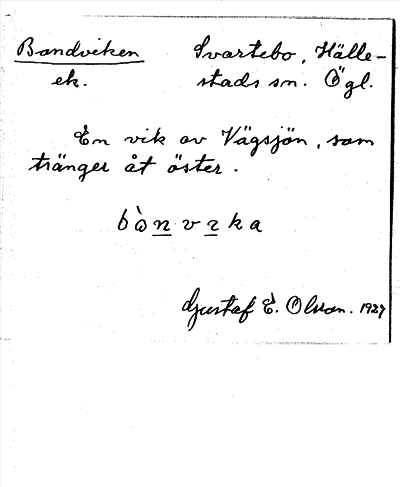 Bandviken Svartebo, Hälle-
ek. stads sn. Ögl.
En vik av Vägsjön, som
tränger åt öster.
Gustaf E. Olsson. 1927